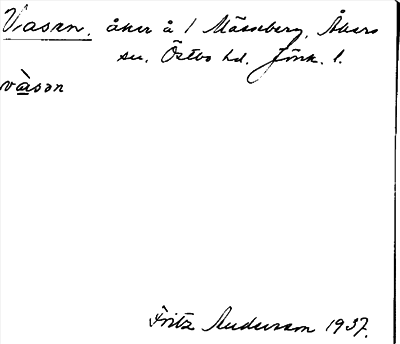 Vasen, åker å 1 Mässeberg, Åkers
sn. Östbo hd. Jönk. l.
vàsən
Fritz Andersson 1937.